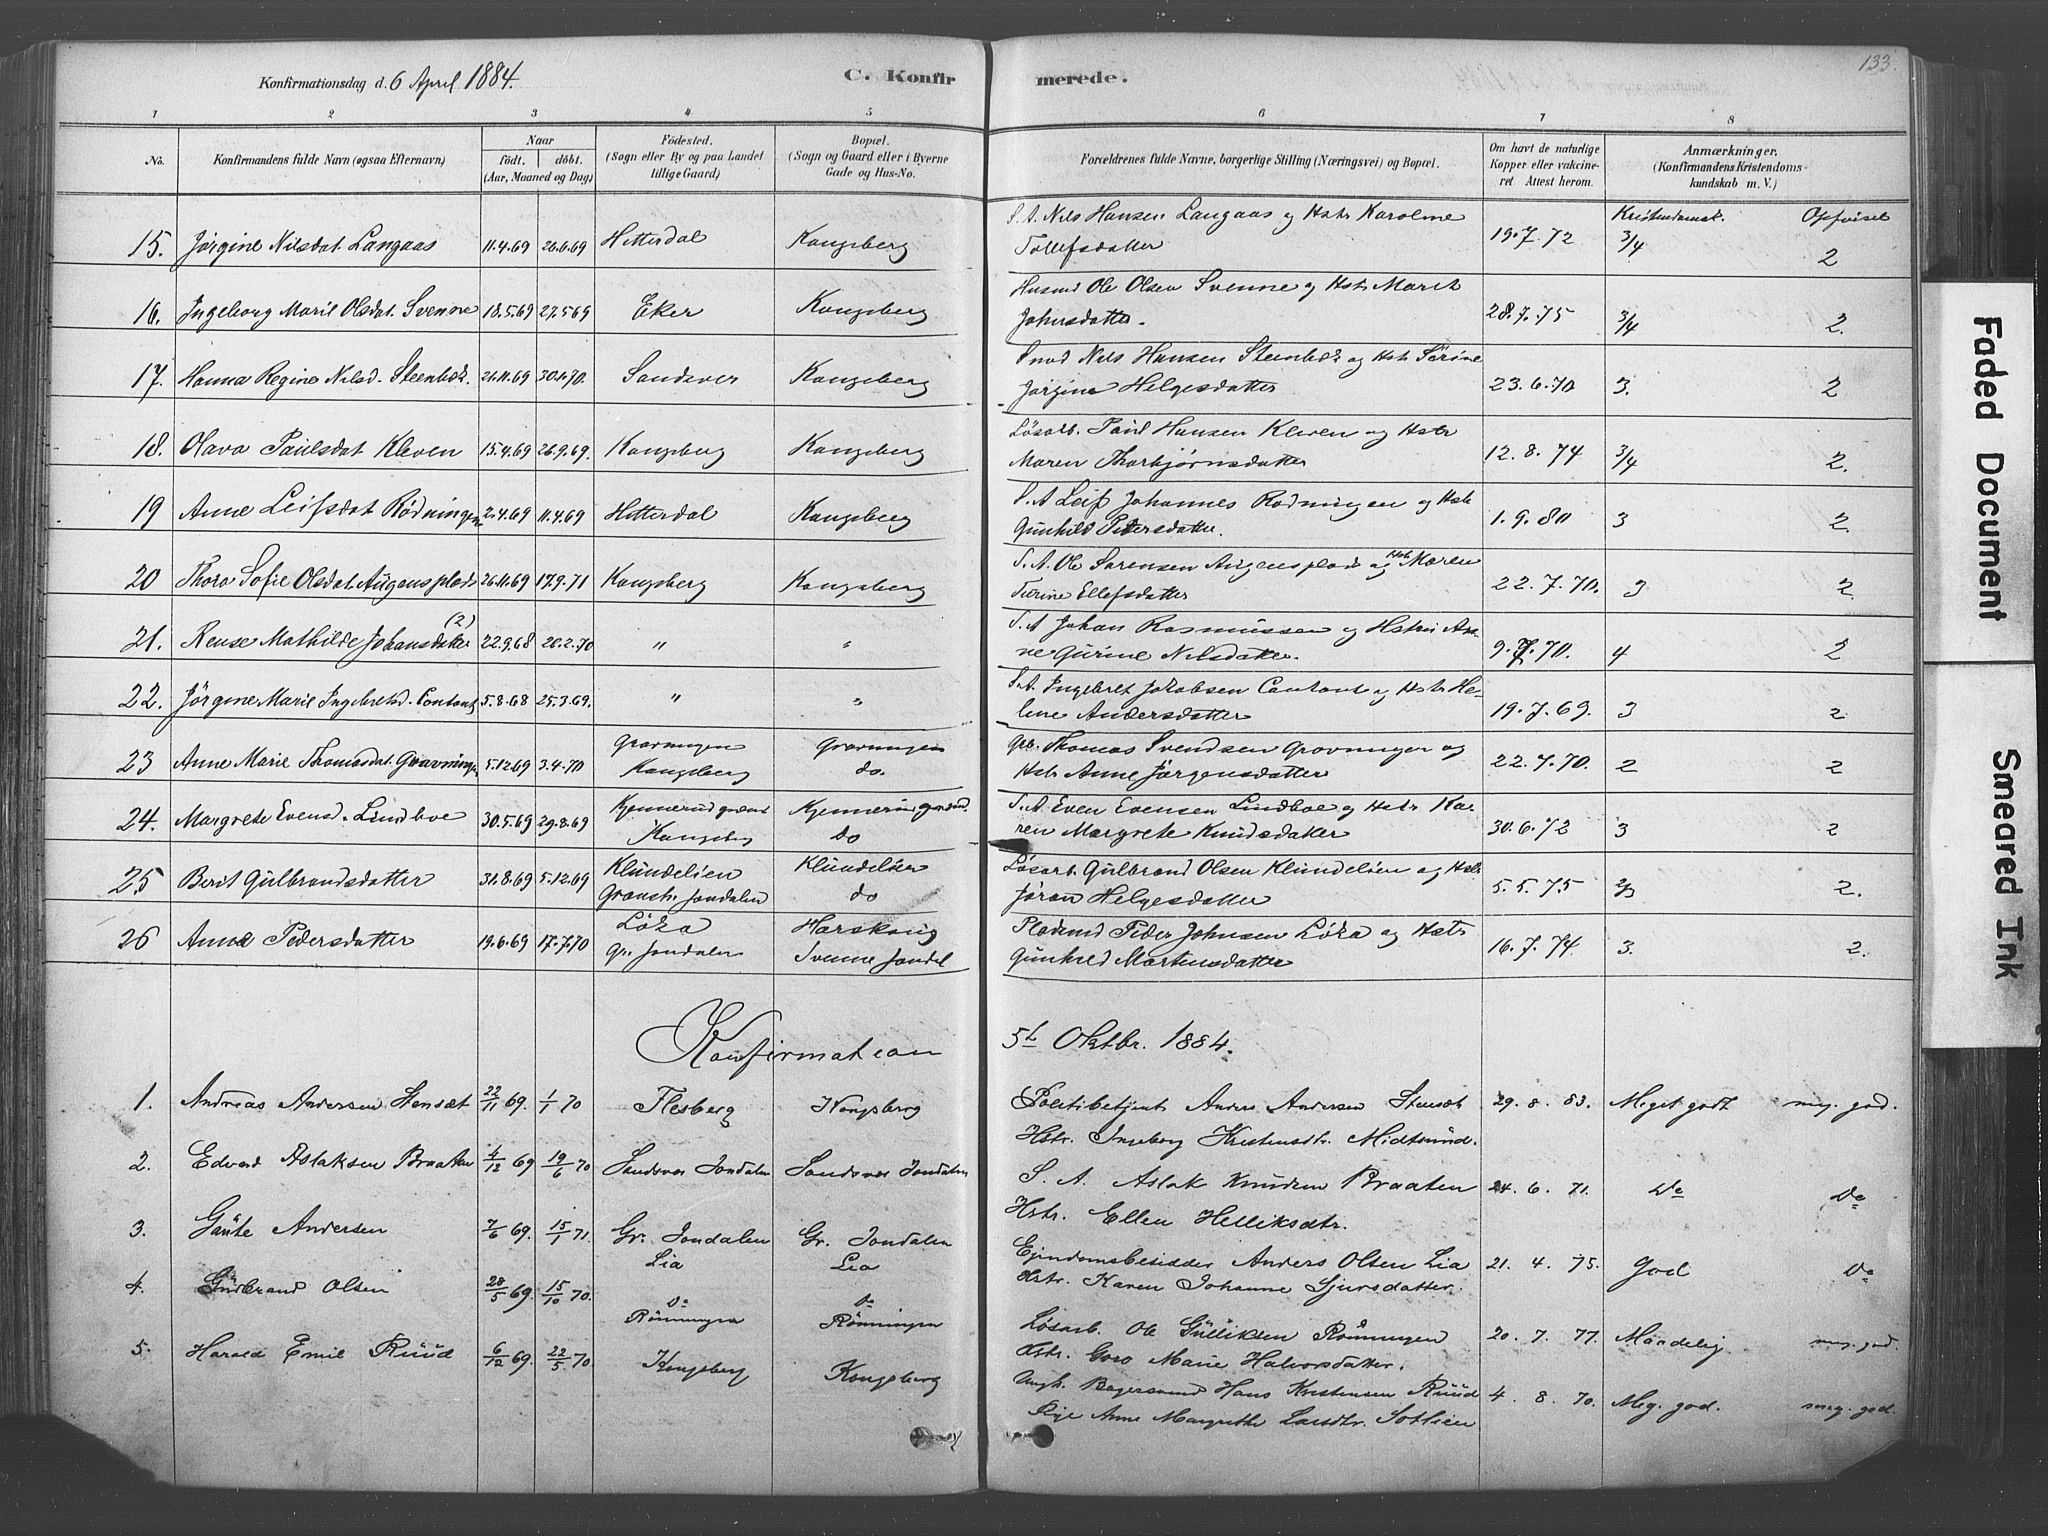 133.
Konfirmationsdag d. 6 April 1884.
C. Konfirmerede.
1 2 3 4 5 6 7 8
No.
Konfirmandens fulde Navn (ogsaa Efternavn)
Naar
født. døbt.
(Aar, Maaned og Dag)
Födested.
(Sogn eller By og paa Landet
tillige Gaard)
Bopæl.
(Sogn og Gaard eller i Byerne
Gade og Hus-No.
Forældrenes fulde Navne, borgerlige Stilling (Næringsvei) og Bopæl.
Om havt de naturlige
Kopper eller vakcine-
ret Attest herom.
Anmærkninger.
(Konfirmandens Kristendoms-
kundskab m. V.)
Kristendomsk. Opførsel
15. Jørgine Nilsdat. Langaas 11.4.69 Hitterdal Kongsberg S. A. Nils Hansen Langaas og Hstr Karoline
Tollefsdatter 19.7.72 3/4 2
16. Ingeborg Marie Olsdat. Svenne 18.5.69 27.5.69 Eker Kongsberg Husmd Ole Olsen Svenne og Hstr Marit
Johnsdatter. 28.7.75 3/4 2.
17. Hanna Regine Nilsd. Steenbek. 30.1.70. Sandsver Kongsberg Nils Hansen Steenbek og Hstr Sørine
Jørgine Helgesdatter 23.6.70 3. 2
18. Olava Paulsdat Kleven 15.4.69 26.9.69. Kongsberg Kongsberg Løsarb. Paul Hansen Kleven og Hstr
Maren Thorbjørnsdatter 12.8.74 3/4 2.
19 Anne Leifsdat Rødningen 2.4.69 11.4.69 Hitterdal Kongsberg S. A Leif Johannes Rødningen og Hstr
Gunhild Pedersdatter. 1.9.80 3 2.
20 Thora Sofie Olsdat. Augensplads 26.11.69 17.9.71 Kongsberg Kongsberg S. A. Ole Sørensen Augensplads og Hstr Maren
Turine Ellefsdatter 22.7.70. 3 2.
21. Rense Mathilde Johansdatter (2) 22.9.68 20.2.70 " " S. A Johan Rasmussen og Hstru An-
ne Gurine Nilsdatter. 9.7.70. 4 2
22. Jörgine Marie Ingebretsd. Contant 5.8.68 25.3.69. " " S. A. Ingebret Jakobsen Contant og Hstr He-
lene Andersdatter 19.7.69. 3 2.
23 Anne Marie Thomasdat. Gravningen 5.12.69 3.4.70 Gravningen Gravningen Gb. Thomas Svendsen Gravningen og
Kongsberg do. Hstr Anne Jørgensdatter 22.7.70. 2 2
24. Margrete Evensd. Lindboe 30.5.69 29.8.69 S. A. Even Evensen Lindboe og Hstr Ka-
Kongsberg do ren Margrete Knudsdatter 30.6.72 3 2
25 Berit Gulbrandsdatter 31.8.69 5.12.69 Klundelien Klundelien Løsarb. Gulbrand Olsen Klundelien og Hstr
Jondalen do Jøran Helgesdatter 5.5.75 2.
26 Anna Pedersdatter 19.6.69 17.7.70 Løka Pladsmd Peder Johnsen Løka og Hstr
Gr. Jondalen Svenne Jondal Gunhild Martinsdatter 16.7.74. 3. 2.
Konfirmation 5t Oktbr. 1884.
1. Andreas Andersen Stensæt 22/11 69. 1/1 70 Flesberg Kongsberg Politibetjent Anders Andersen Stensæt 29. 8. 83. Meget godt meg. god.
Hstr. Ingeborg Kristensdtr. Midtsund.
2. Edvard Aslaksen Braaten 4/12 69 19/6 70 Sandsvær Jondalen Sandsvær Jondalen S. A. Aslak Knudsen Braaten 24. 6. 71. Do Do
Hstr. Ellen Helliksdtr.
3. Gaute Andersen 7/6 69. 15/1 71. Gr. Jondalen Gr. Jondalen Ejendomsbesidder Anders Olsen Lia 21. 4. 75. God Do
Lia Lia Hstr. Karen Johanne Sjursdatter.
4. Gudbrand Olsen 28/5 69. 15/10 70. Do Do Løsarb. Ole Gulliksen Rønningen 20. 7. 77. Maadelig meg. god.
Rønningen Rønningen Hstr. Goro Marie Halvorsdatter.
5. Harald Emil Ruud 6/12 69. 22/5 70. Kongsberg Kongsberg Ungk. Bagersvend Hans Kristensen Ruud 4. 8. 70. Meg. god. meg. god.
Pige Anne Margrethe Larsdtr. Sotlien
Faded Document
Smeared Ink